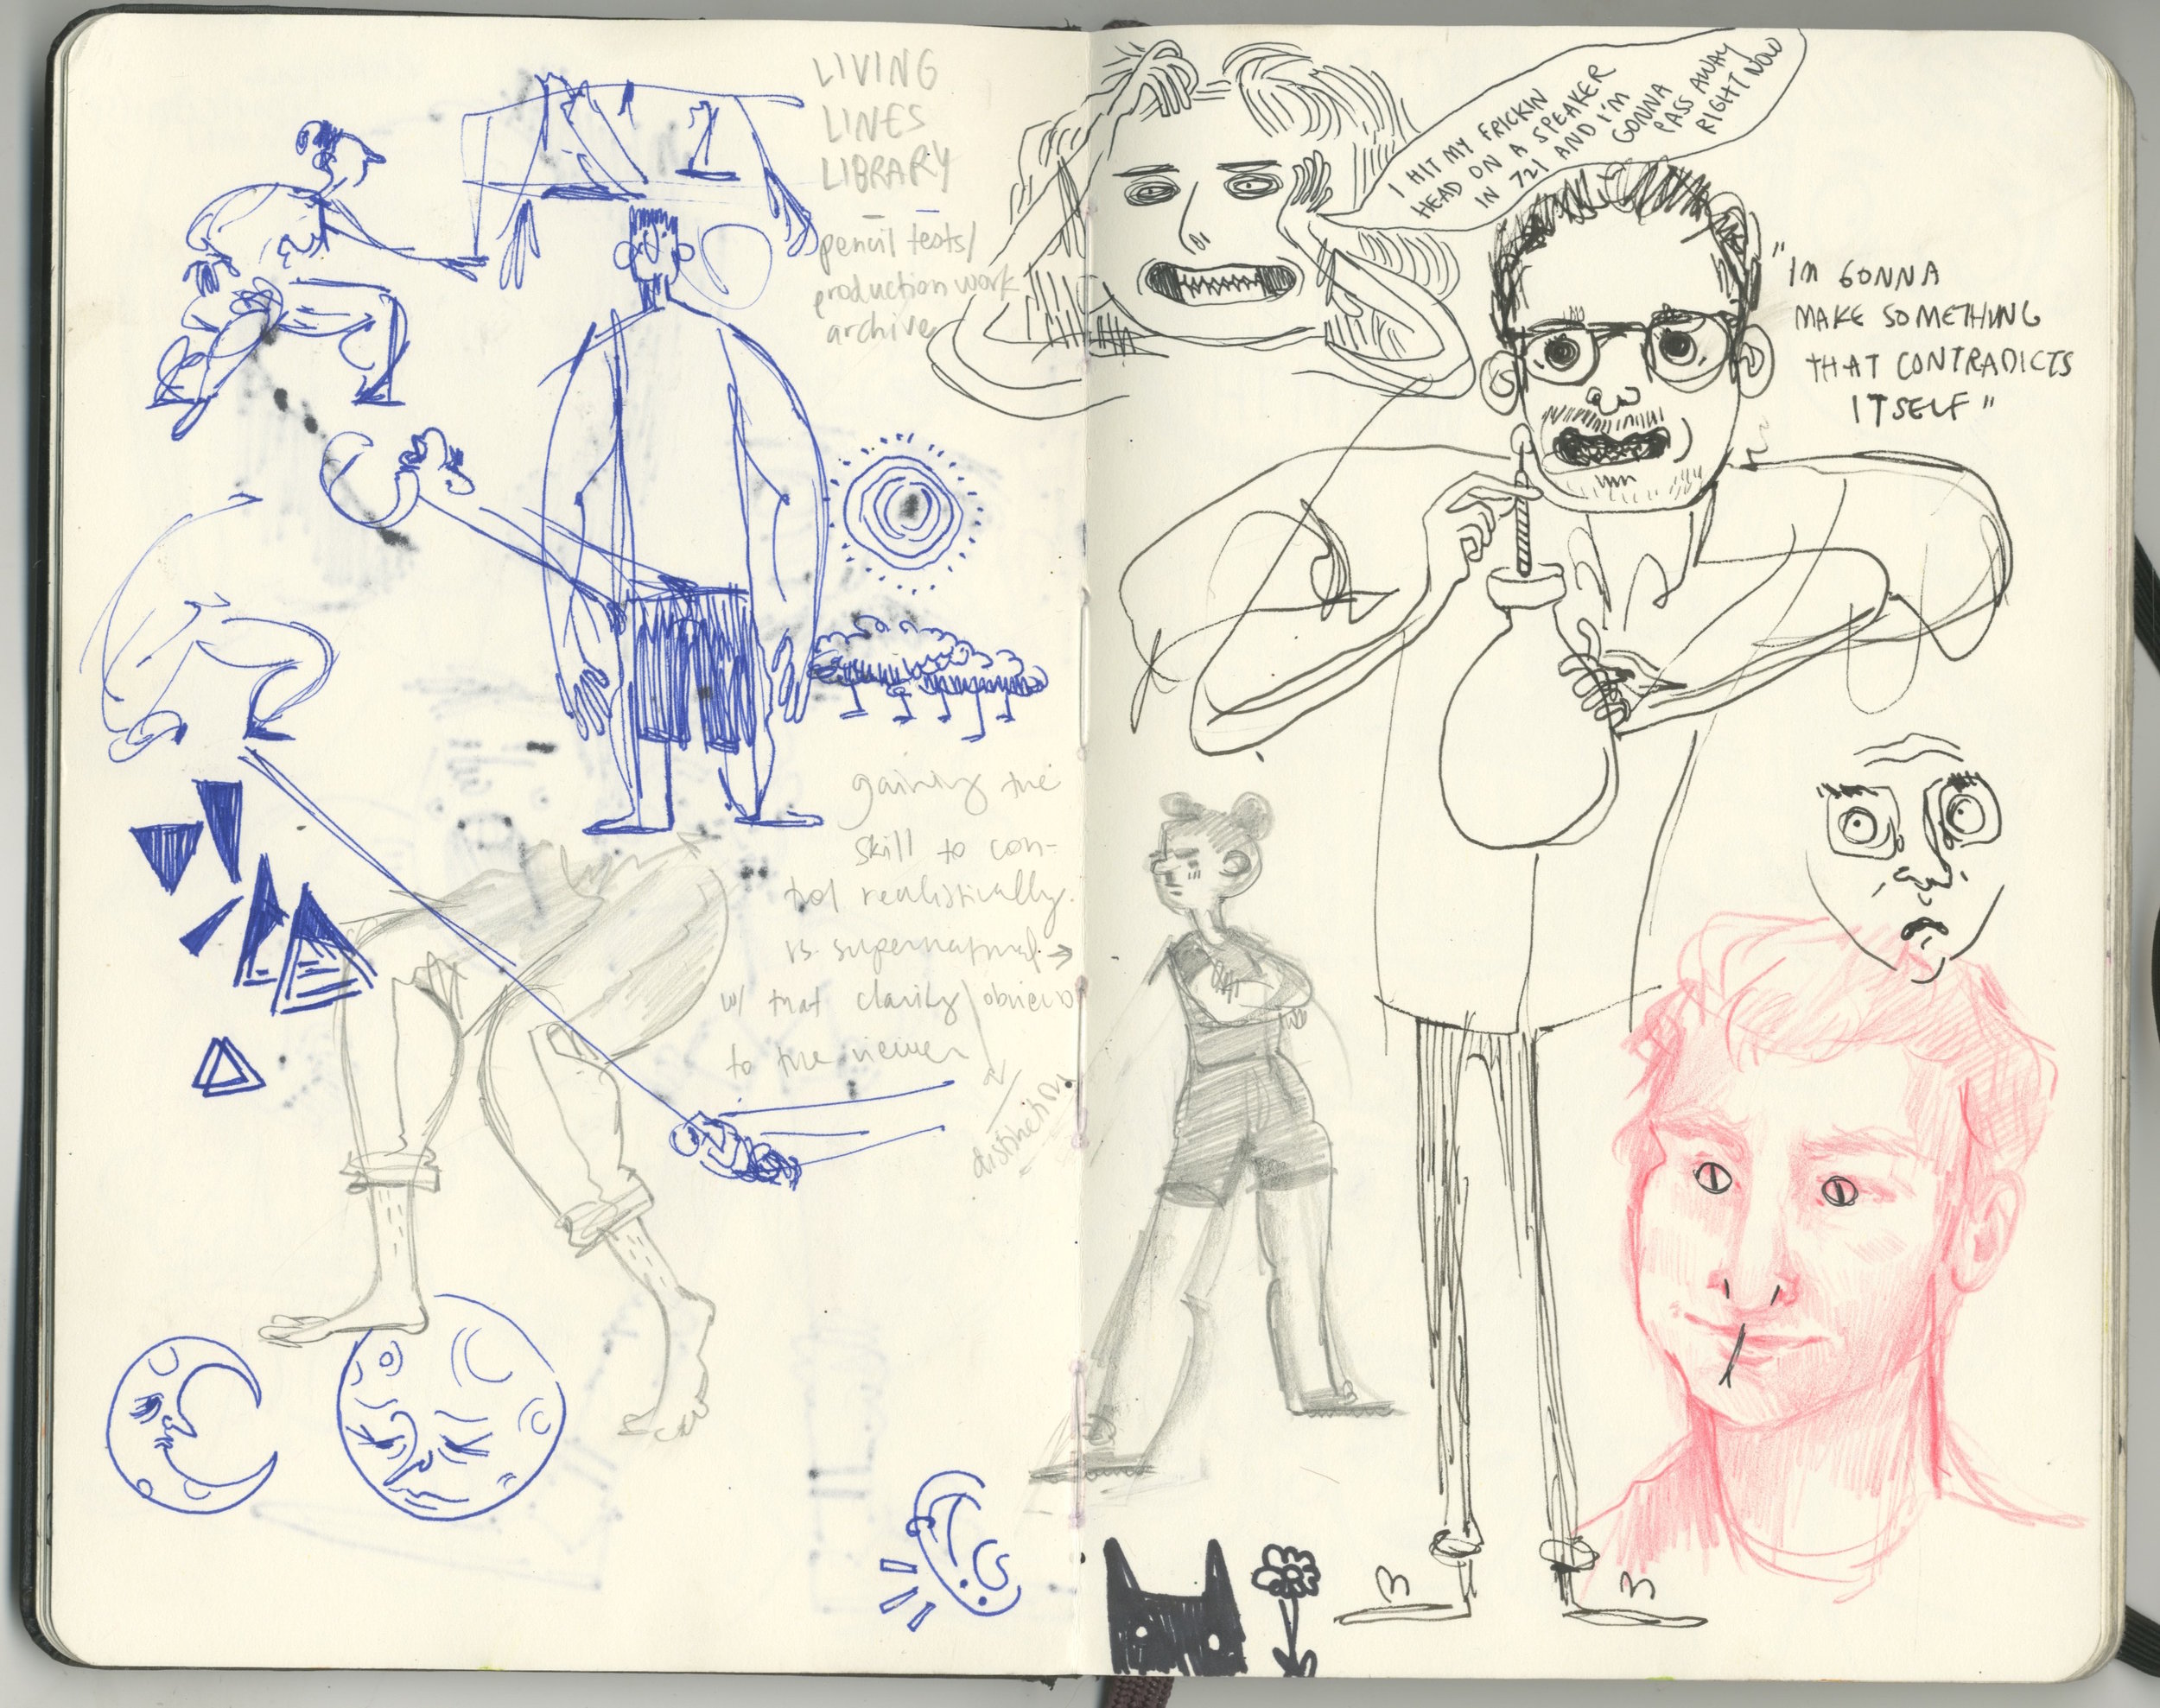 LIVING
LINES
LIBRARY
pencil tests/
production work
archive
gaining the
skill to con-
trol realistically.
vs. supernatural →
w/ that clarity/
to the viewer
distinction
I HIT MY FRICKIN
HEAD ON A SPEAKER
IN 721 AND I'M
GONNA
PASS AWAY
RIGHT NOW
"IM GONNA
MAKE SOMETHING
THAT CONTRADICTS
ITSELF"